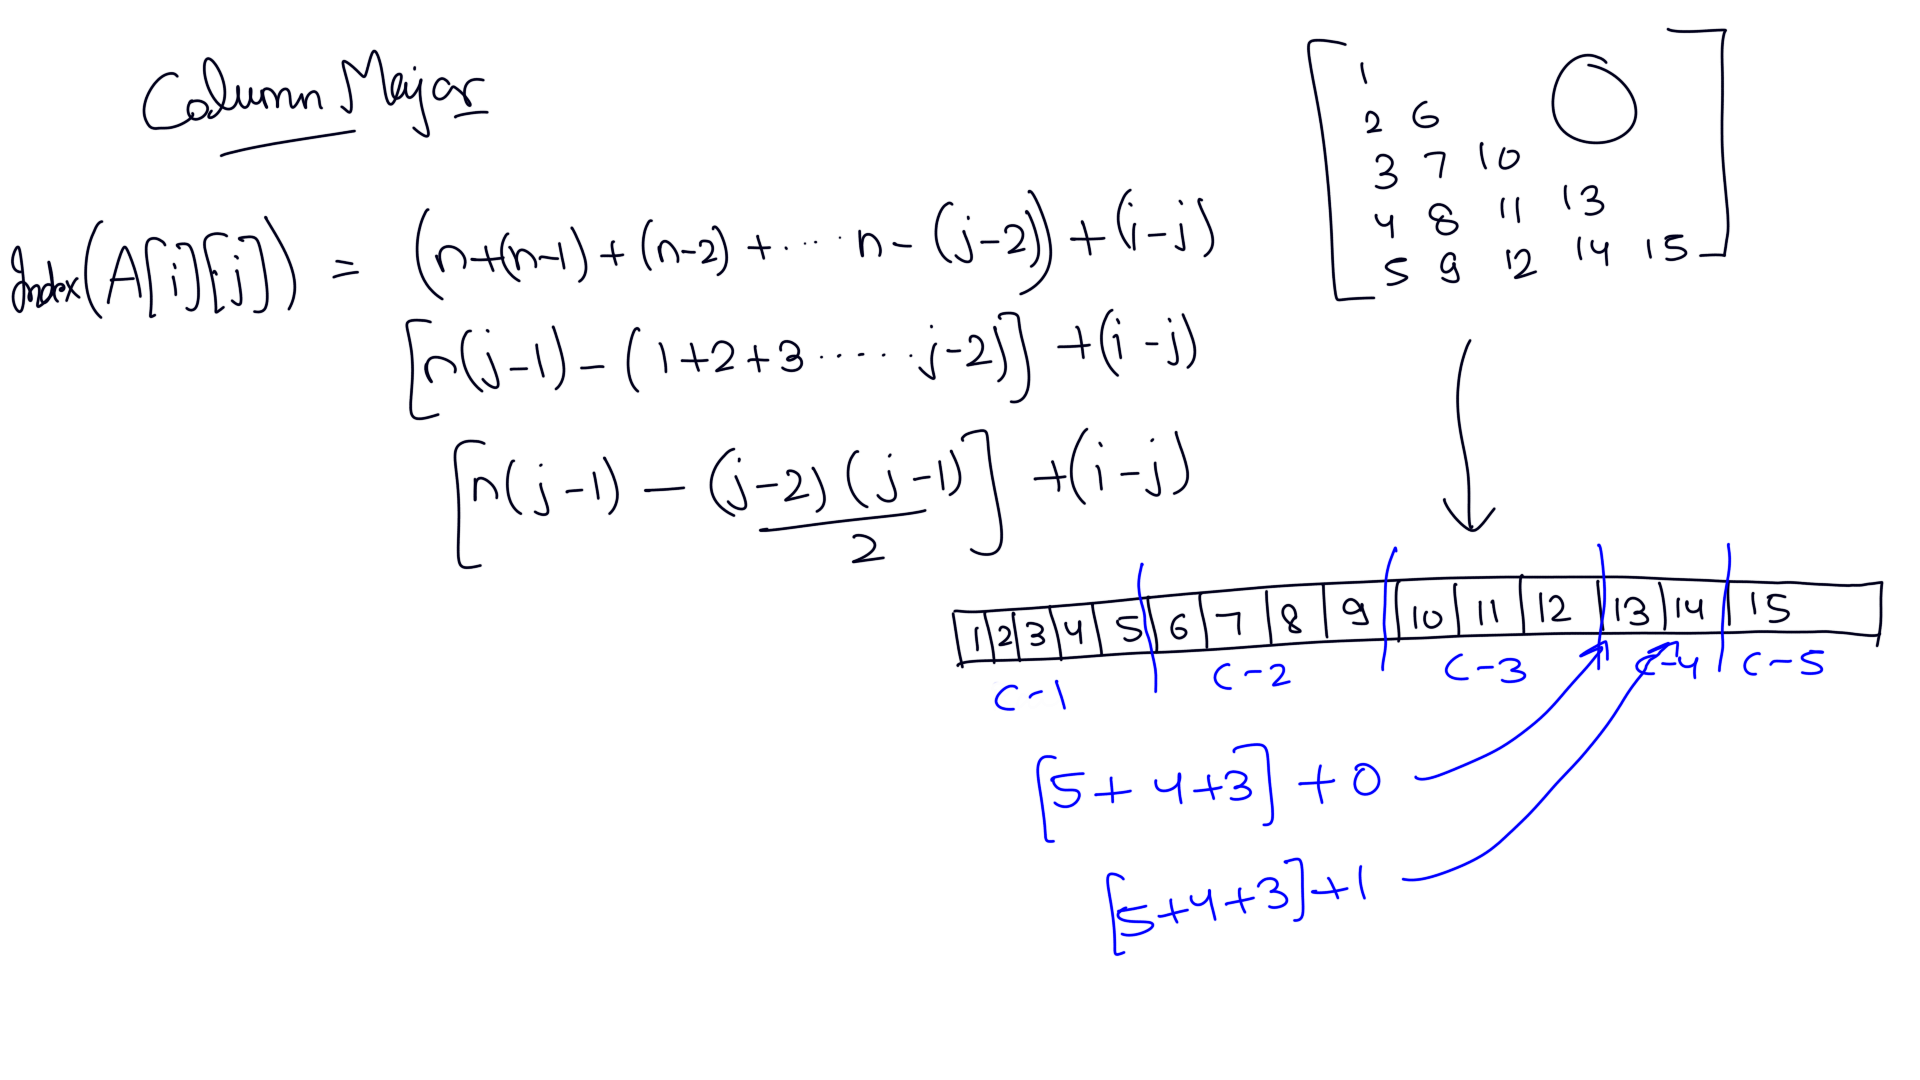 Column Major
Index(A[i][j]) = (n+(n-1)+(n-2)+.....n-(j-2))+(i-j)
[n(j-1)-(1+2+3.....j-2)]+(i-j)
[n(j-1) - (j-2)(j-1)/2] +(i-j)
1
2 6
3 7 10
4 8 11 13
5 9 12 14 15
O
1 2 3 4 5 6 7 8 9 10 11 12 13 14 15
C-1 C-2 C-3 C-4 C-5
[5+4+3]+0
[5+4+3]+1